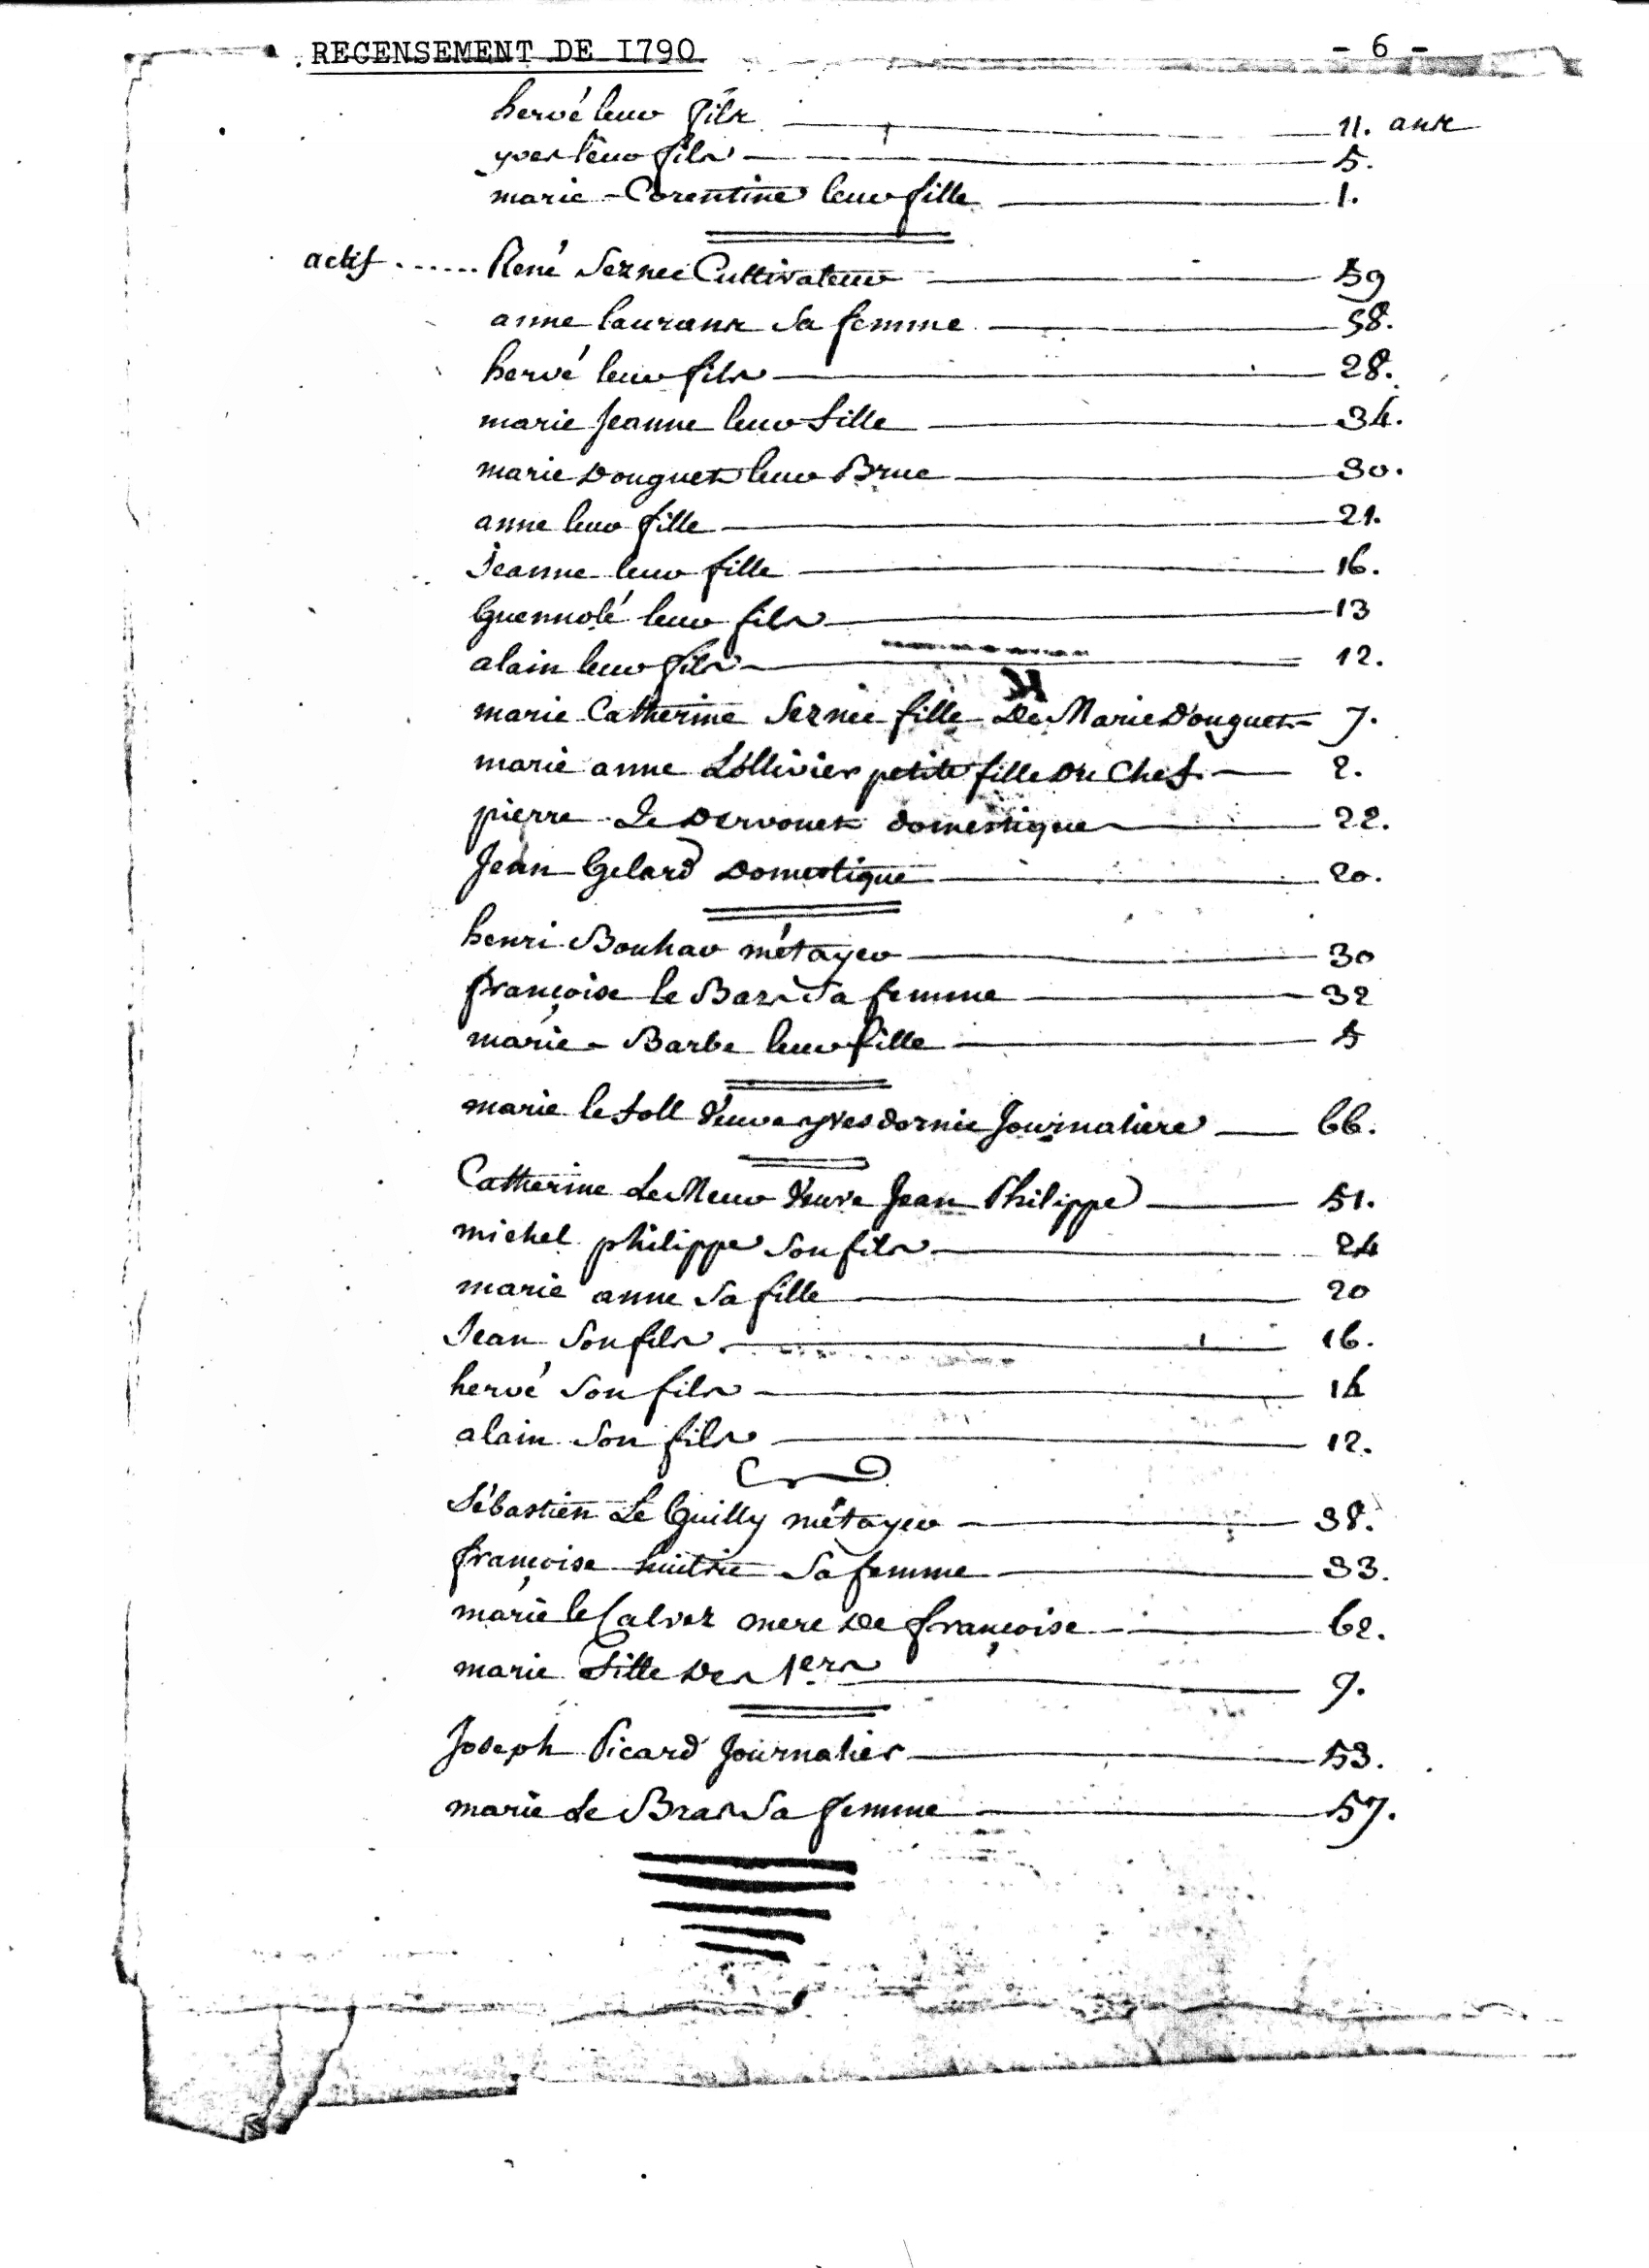 RECENSEMENT DE I790
- 6 -
hervé leur fils 11. ans
yves leur fils 5.
marie-Corentine leur fille 1.
actif ...... René Seznec Cultivateur 59
anne laurans Sa femme 58.
hervé leur fils 28.
marie Jeanne leur fille 34.
marie Douguet leur Brue 30.
anne leur fille 21.
Jeanne leur fille 16.
Guennolé leur fils 13
alain leur fils 12.
marie Catherine Seznec fille De Marie Douguet 7.
marie anne L'ollivier petite fille Du Chef 2.
pierre Le Dervouet domestique 22.
Jean Gelard Domestique 20.
henri Bouhar métayer 30
françoise le Bars Sa femme 32
marie-Barbe leur fille 5
marie le foll Veuve yves dornic Journaliere 66.
Catherine Le Meur Veuve Jean Philippe 51.
michel philippe Son fils 24
marie anne Sa fille 20
Jean Son fils 16.
hervé Son fils 14
alain Son fils 12.
Sébastien Le Guilly métayer 38.
françoise Sa femme 33.
marie le Calvez mere De françoise 62.
marie fille Des 1ers 9.
Joseph Picard Journalier 53.
marie Le Bras Sa femme 57.